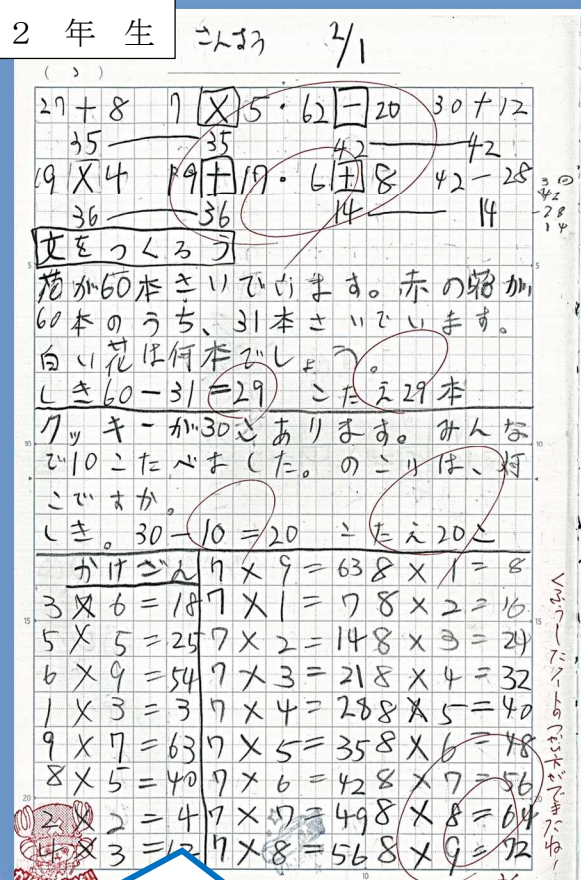 2 年 生
さんすう 2/1
27+8 7×5・62-20 30+12
35 35 42 42
9×4 19+17・6+8 42-28
36 36 14 14
42
-28
14
文をつくろう
花が60本さいでいます。赤の花が
60本のうち、31本さいでいます。
白い花は何本でしょう。
しき60-31=29 こたえ29本
クッキーが30こあります。みんな
で10こたべました。のこりは、何
こですか。
しき。30-10=20 こたえ20こ
かけざん
3×6=18
5×5=25
6×9=54
1×3=3
9×7=63
8×5=40
2×2=4
4×3=12
7×9=63
7×1=7
7×2=14
7×3=21
7×4=28
7×5=35
7×6=42
7×7=49
7×8=56
8×1=8
8×2=16
8×3=24
8×4=32
8×5=40
8×6=48
8×7=56
8×8=64
8×9=72
くふうしたノートのつかい方ができたね!
5
10
15
20
10